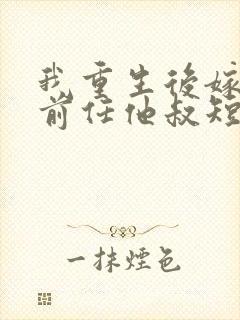 我重生後嫁
前任他叔短
一抹煙色